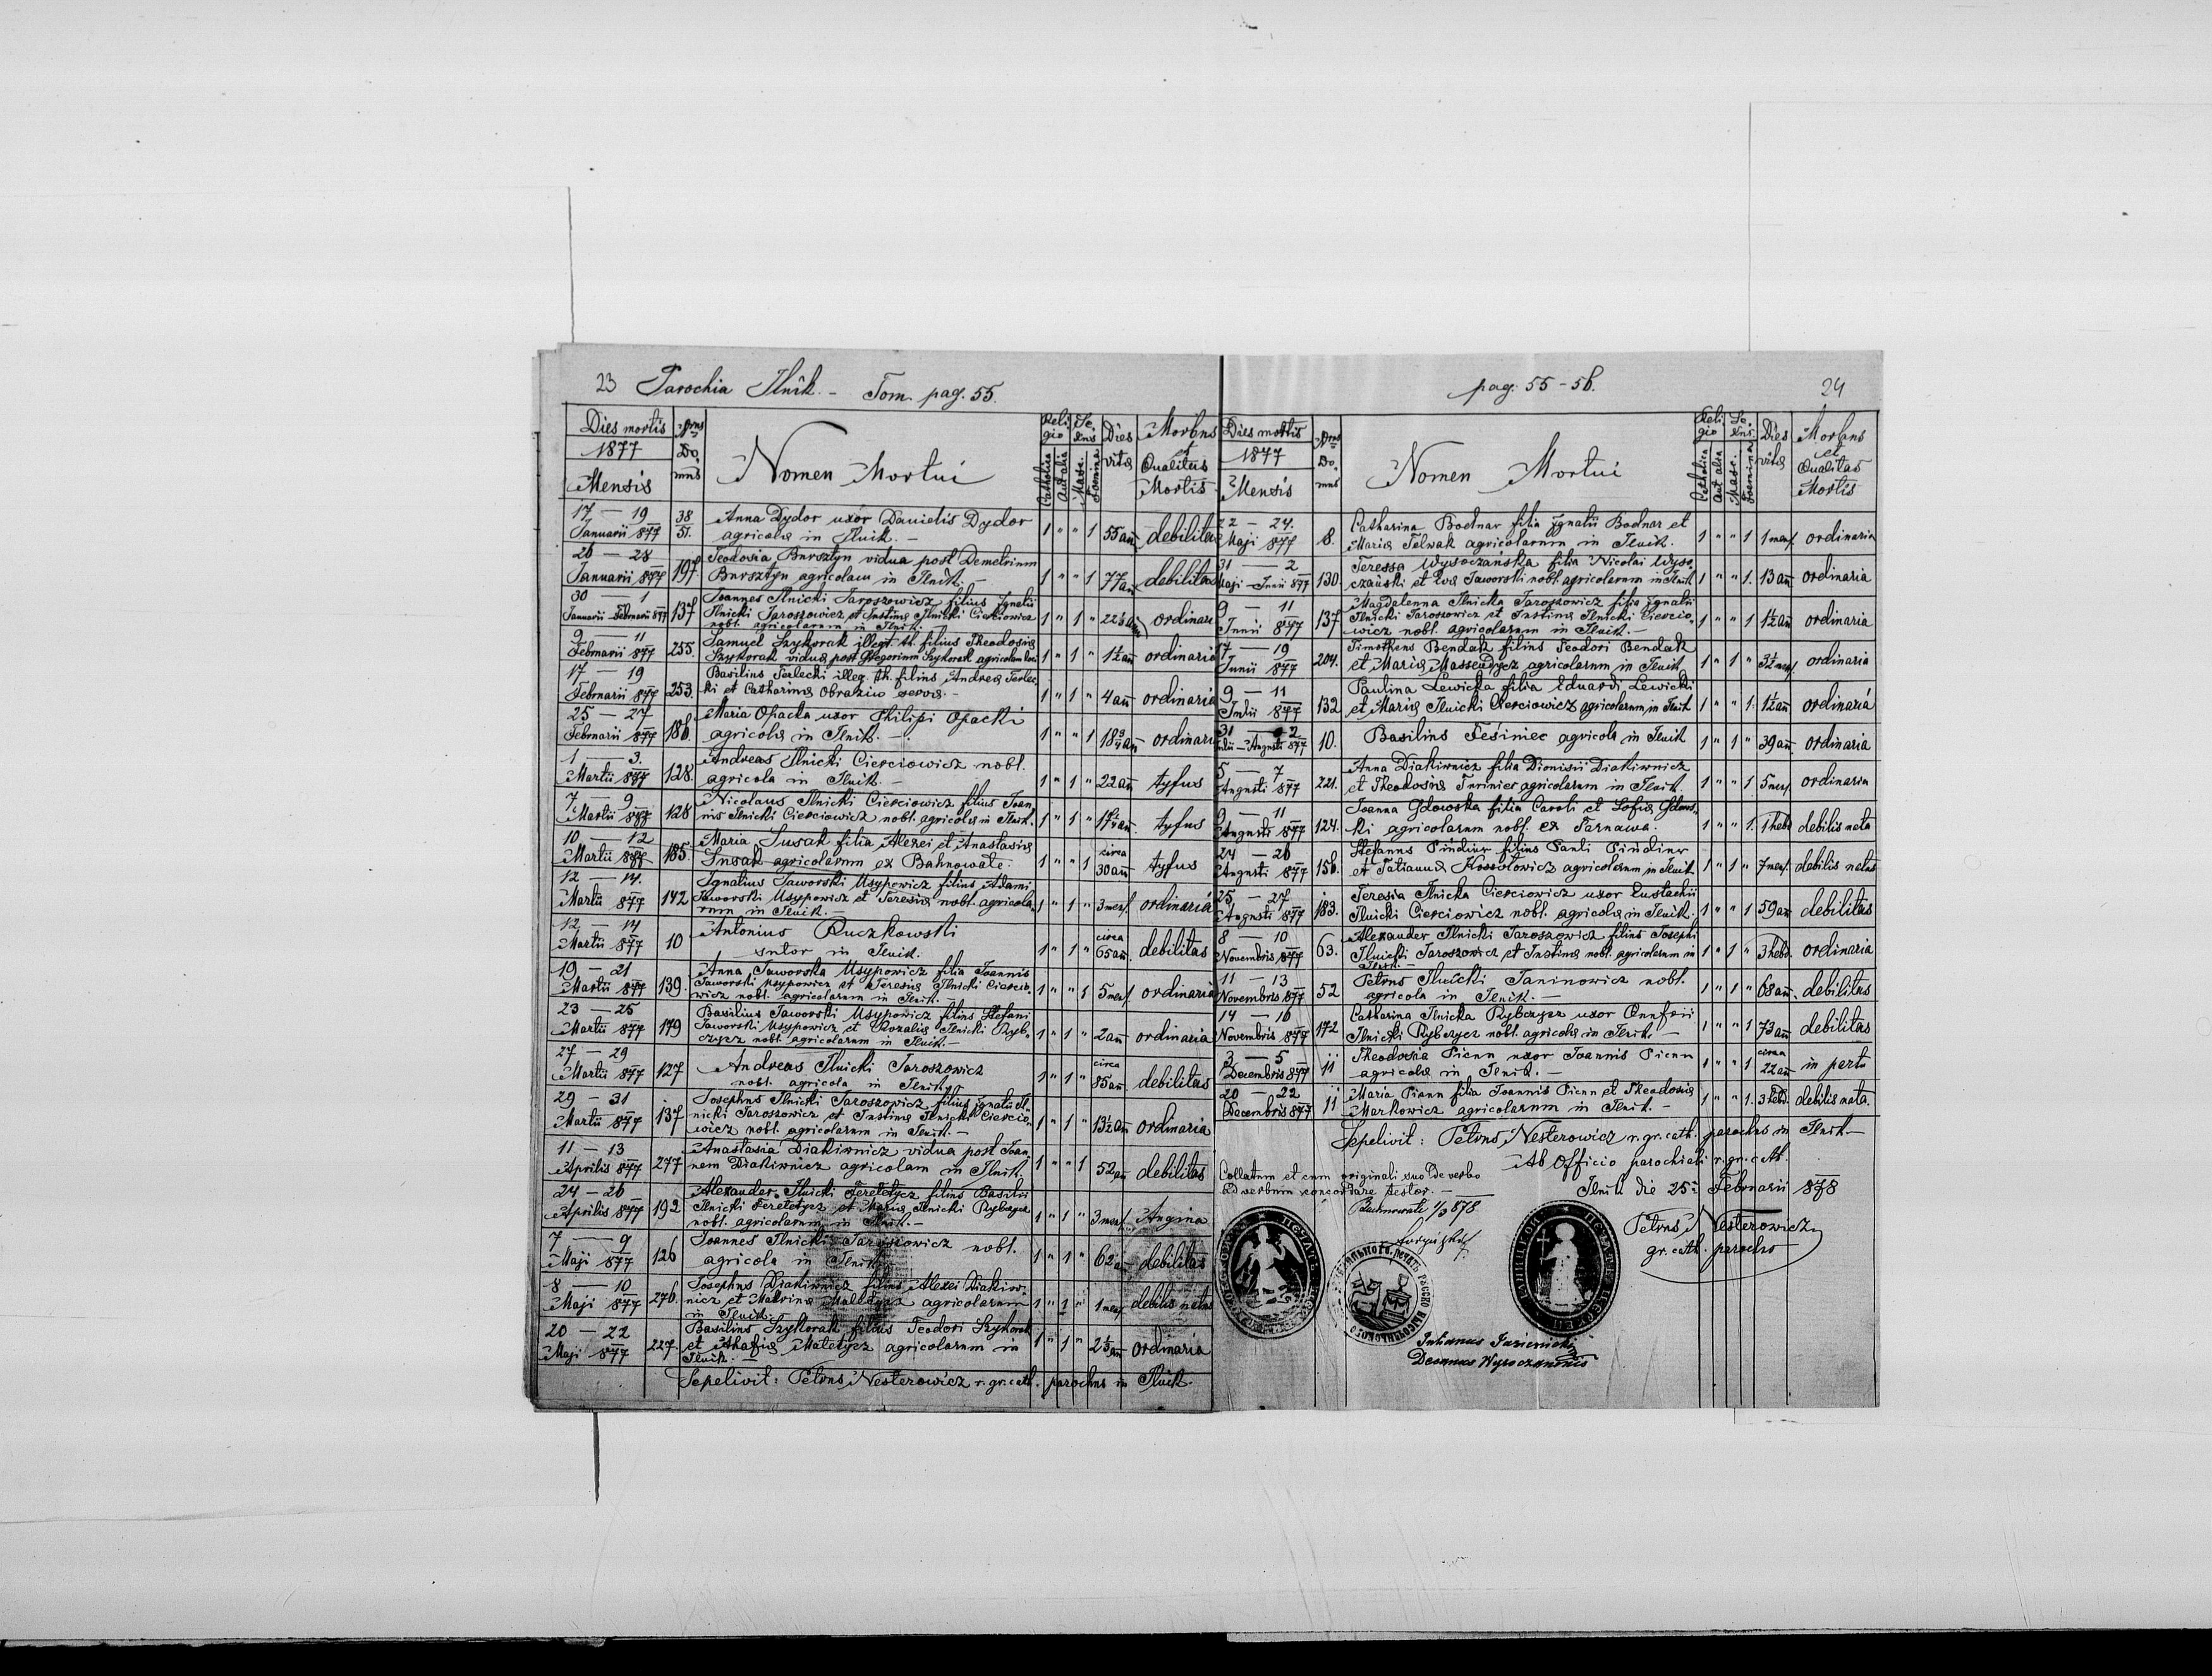 23 Parochia Ilnik. - Tom. pag. 55.
Dies mortis
1877
Mensis
Nrus Domus
Nomen Mortui
Religio
Catholica
Aut alia
Sexus
Masc.
Foemina
Dies vitæ
Morbus et Qualitas Mortis
17 — 19 Januarii 877
38/51.
Anna Dydor uxor Danielis Dydor
agricolæ in Ilnik. —
1 " " 1 55 an debilitas
26 — 28 Januarii 877
197
Teodosia Bursztyn vidua post Demetrium
Bursztyn agricolam in Ilnik. —
1 " " 1 77 an debilitas
30 — 1 Januarii - Februarii 877
137
Joannes Ilnicki Jaroszowicz filius Ignatii
Ilnicki Jaroszowicz et Justinæ Ilnicki Cieściowicz
nobl. agricolarum in Ilnik.
1 " 1 " ordinaria
9 — 11 Februarii 877
255.
Samuel Szykorak illegt. th. filius Theodosiæ
Szykorak viduæ post Gregorium Szykorak agricolam
1 " 1 " 1½ an ordinaria
17 — 19 Februarii 877
253.
Basilius Terlecki illeg. th. filius Andreæ Terlec
ki et Catharinæ Obraziw servæ. —
1 " 1 " 4 an ordinaria
25 — 27 Februarii 877
186.
Maria Opacka uxor Philipi Opacki
agricolæ in Ilnik. —
1 " " 1 18¾ an ordinaria
1 — 3. Martii 877
128.
Andreas Ilnicki Cieściowicz nobl.
agricola in Ilnik. —
1 " 1 " 22 an tyfus
7 — 9 Martii 877
128
Nicolaus Ilnicki Cieściowicz filius Joan
nis Ilnicki Cieściowicz nobl. agricolæ in Ilnik.
1 " 1 " tyfus
10 — 12 Martii 877
185.
Maria Susak filia Alexei et Anastasiæ
Susak agricolarum ex Bahnowate.
1 " " 1 circa 30 an tyfus
12 — 14. Martii 877
142
Ignatius Jaworski Usypowicz filius Adami
Jaworski Usypowicz et Teresiæ nobl. agricola
rum in Ilnik. —
1 " 1 " 3 mens. ordinaria
12 — 14 Martii 877
10
Antonius Ruczkowski
sutor in Ilnik.
1 " 1 " circa 65 an. debilitas
19 — 21 Martii 877
139.
Anna Jaworska Usypowicz filia Joannis
Jaworski Usypowicz et Teresiæ Ilnicki Cieścio
wicz nobl. agricolarum in Ilnik. —
1 " " 1 5 mens. ordinaria
23 — 25 Martii 877
179
Basilius Jaworski Usypowicz filius Stefani
Jaworski Usypowicz et Rozaliæ Ilnicki Ryb
czycz nobl. agricolarum in Ilnik. —
1 " 1 " 2 an ordinaria
27 — 29 Martii 877
127
Andreas Ilnicki Jaroszowicz
nobl. agricola in Ilnik.
1 " 1 " circa 85 an. debilitas
29 — 31 Martii 877
137
Josephus Ilnicki Jaroszowicz filius Ignatii Il
nicki Jaroszowicz et Justinæ Ilnicki Cieścio
wicz nobl. agricolarum in Ilnik. —
1 " 1 " 13½ an ordinaria
11 — 13 Aprilis 877
277
Anastasia Diakiwnicz vidua post Joan
nem Diakiwnicz agricolam in Ilnik.
1 " " 1 52 an debilitas
24 — 26 Aprilis 877
192
Alexander Ilnicki Teretetycz filius Basilii
Ilnicki Teretetycz et Mariæ Ilnicki Rybczycz
nobl. agricolarum in Ilnik. —
1 " 1 " 3 mens. Angina
7 — 9 Maji 877
126
Joannes Ilnicki Jaroszowicz nobl.
agricola in Ilnik.
1 " 1 " 62 an debilitas
8 — 10 Maji 877
276.
Josephus Diakiwnicz filius Alexei Diakiw
nicz et Matrinæ Maletycz agricolarum
in Ilnik.
1 " 1 " 1 mens. debilis natus
20 — 22 Maji 877
227.
Basilius Szykorak filius Teodori Szykorak
et Ahafiæ Maletycz agricolarum in
Ilnik. —
1 " 1 " ordinaria
Sepelivit: Petrus Nesterowicz r. gr. cath. parochus in Ilnik.
pag. 55 - 56. 24
Dies mortis
1877
Mensis
Nrus Domus
Nomen Mortui
Religio
Catholica
Aut alia
Sexus
Masc.
Foemina
Dies vitæ
Morbus et Qualitas Mortis
22 — 24. Maji 877
8.
Catharina Bodnar filia Ignatii Bodnar et
Mariæ Telwak agricolarum in Ilnik.
1 " " 1 1 mens. ordinaria
31 — 2 Maji — Junii 877
130.
Teressa Wysoczańska filia Nicolai Wyso
czański et Evæ Jaworski nobl. agricolarum in Ilnik
1 " " 1. 13 an ordinaria
9 — 11 Junii 877
137
Magdalenna Ilnicka Jaroszowicz filia Ignatii
Ilnicki Jaroszowicz et Justinæ Ilnicki Cieścio
wicz nobl. agricolarum in Ilnik. —
1 " " 1 1½ an ordinaria
17 — 19 Junii 877
204.
Timotheus Bendak filius Teodori Bendak
et Mariæ Massendycz agricolarum in Ilnik
1 " 1 " 3½ mens. ordinaria
9 — 11 Julii 877
132
Paulina Lewicka filia Eduardi Lewicki
et Mariæ Ilnicki Cieściowicz agricolarum in Ilnik
1 " " 1. 1½ an ordinaria
31 — 2 Julii — Augusti 877
10.
Basilius Feśiniec agricola in Ilnik
1 " 1 " 39 an ordinaria
5 — 7 Augusti 877
221.
Anna Diakiwnicz filia Dionisii Diakiwnicz
et Theodosiæ agricolarum in Ilnik.
1 " " 1 5 mens. ordinaria
9 — 11 Augusti 877
124.
Joanna Gdowska filia Caroli et Sofiæ Gdows
ki agricolarum nobl. ex Tarnawa.
1 " " 1. 1 hebd. debilis nata
24 — 26 Augusti 877
156.
Stefanus Pindiur filius Pauli Pindiur
et Tatiannæ Kossotowicz agricolarum in Ilnik
1 " 1 " 7 mens. debilis natus
25 — 27 Augusti 877
183.
Teresia Ilnicka Cieściowicz uxor Eustachii
Ilnicki Cieściowicz nobl. agricolæ in Ilnik.
1 " " 1 59 an debilitas
8 — 10 Novembris 877
63.
Alexander Ilnicki Jaroszowicz filius Josephi
Ilnicki Jaroszowicz et Justinæ nobl. agricolarum in
Ilnik. —
1 " 1 " 3 hebd. ordinaria
11 — 13 Novembris 877
52
Petrus Ilnicki Janinowicz nobl.
agricola in Ilnik. —
1 " 1 " 68 an. debilitas
14 — 16 Novembris 877
172
Catharina Ilnicka Rybczycz uxor Onufrii
Ilnicki Rybczycz nobl. agricolæ in Ilnik. —
1 " " 1 73 an debilitas
3 — 5 Decembris 877
11
Theodosia Pienn uxor Joannis Pienn
agricolæ in Ilnik. —
1 " " 1 circa 22 an in partu
20 — 22 Decembris 877
11
Maria Pienn filia Joannis Pienn et Theodosiæ
Markowicz agricolarum in Ilnik. —
1 " " 1. 3 hebd. debilis nata.
Sepelivit: Petrus Nesterowicz r. gr. cath. parochus in Ilnik —
Ab Officio parochiali r. gr. cath.
Ilnik die 25a Februarii 878
Petrus Nesterowicz
gr. cath. parocho
Collatum et cum originali suo de verbo
ad verbum concordare testor. —
Bachnowate 1/3 878
Julianus Jasienicki
Decanus Wysoczanensis